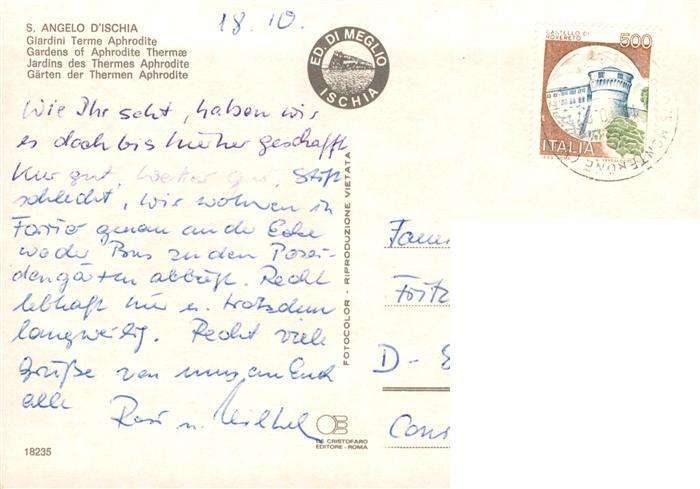 18.10.
S. ANGELO D'ISCHIA
Giardini Terme Aphrodite
Gardens of Aphrodite Thermæ
Jardins des Thermes Aphrodite
Gärten der Thermen Aphrodite
ED. DI MEGLIO
ISCHIA
CASTELLO DI ROVERETO
500
ITALIA
Wie Ihr seht, haben wir
es doch bis hierher geschafft
Kur gut, Wetter gut,
schlecht, wir wohnen in
Forio genau an der Ecke
wo der Bus zu den Posei-
dongärten abbiegt. Recht
lebhaft hier u. trotzdem
langweilig. Recht viele
Grüße von uns an Euch
alle
FOTOCOLOR - RIPRODUZIONE VIETATA
Fam
Fritz
D-
Cons
DE CRISTOFARO
EDITORE - ROMA
18235